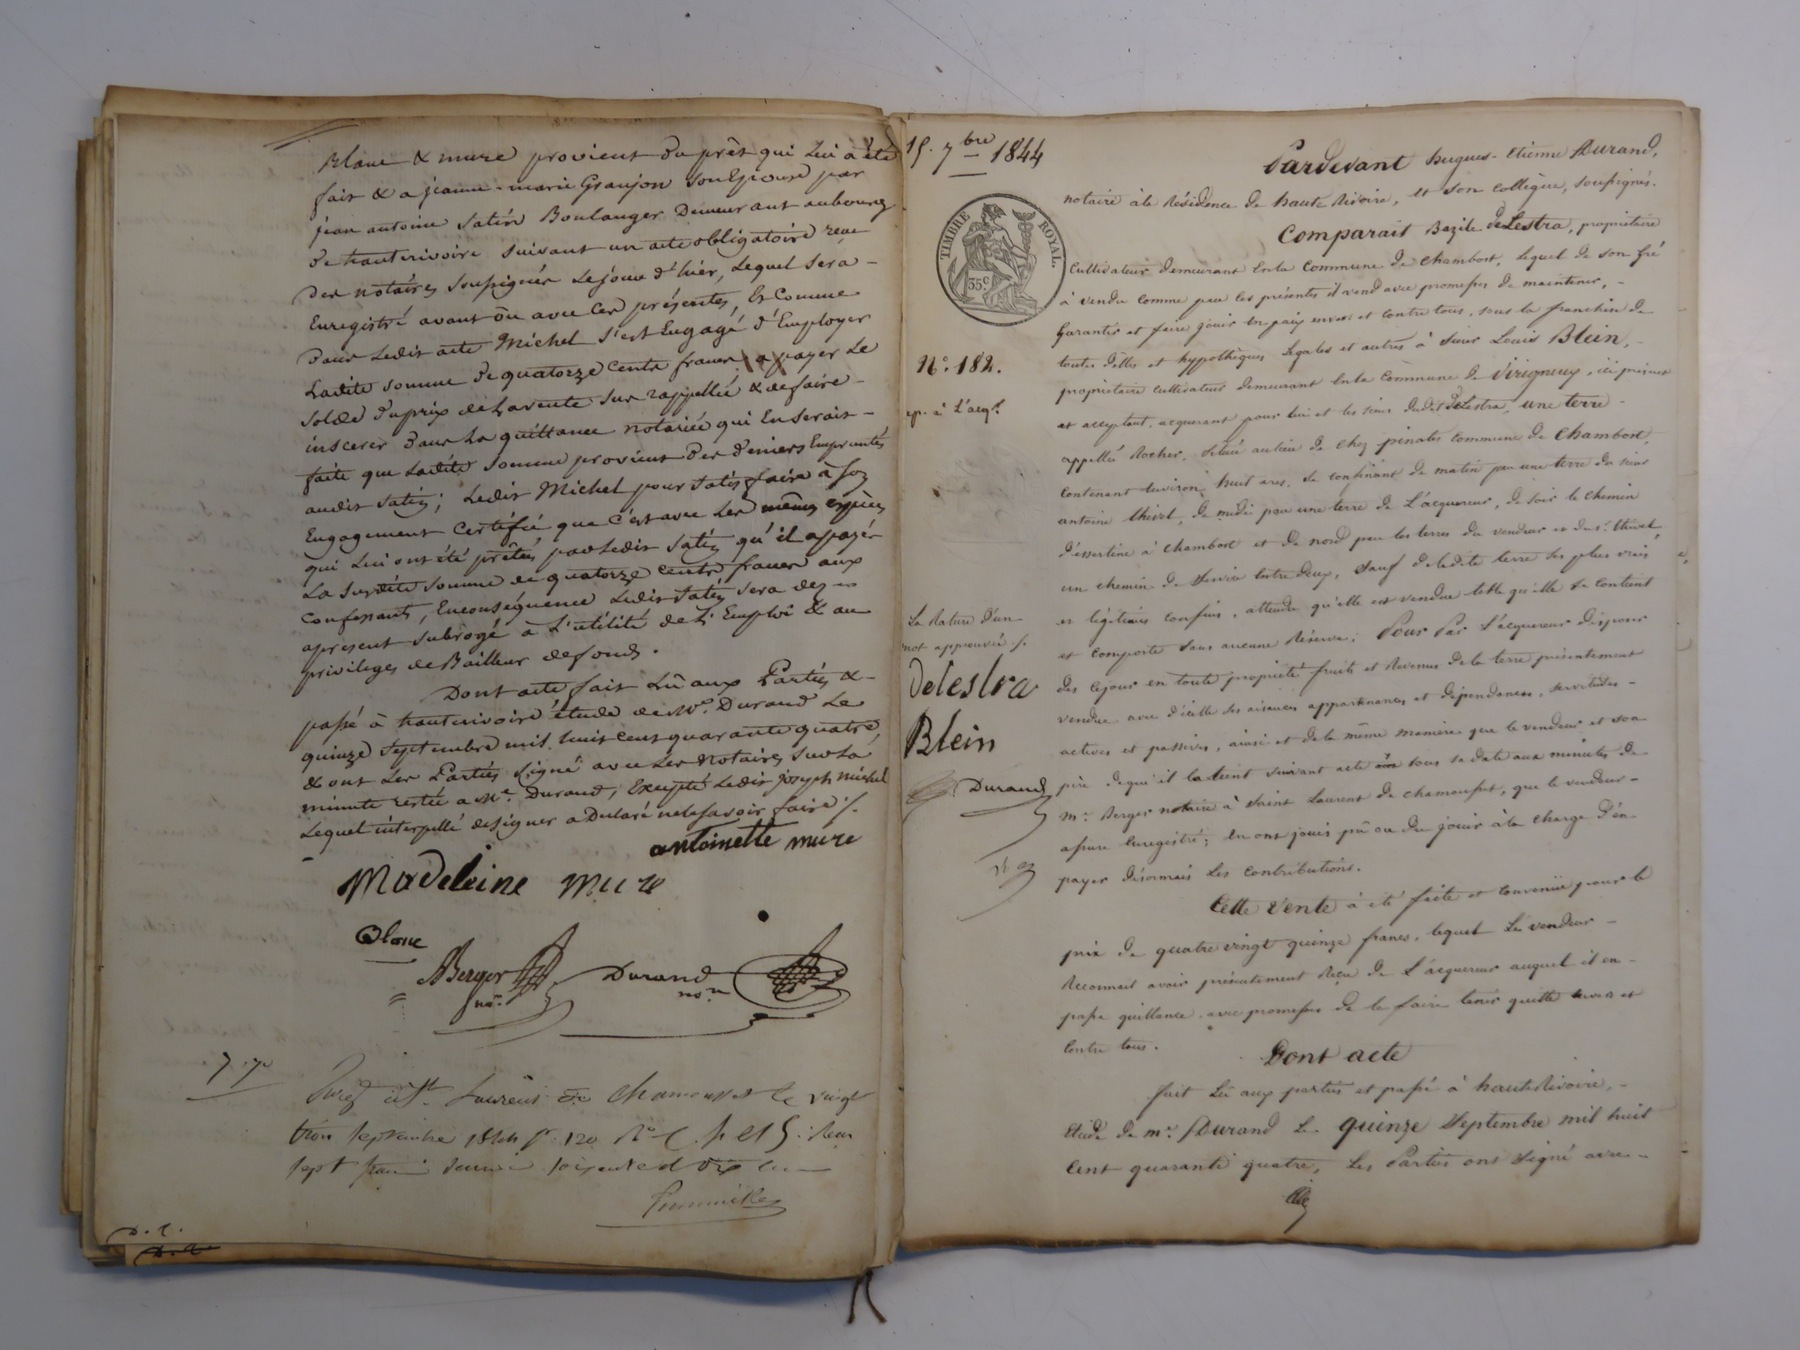 Blanc & mure provient du prêt qui Lui a été
fait & a jeanne-marie Granjon son Epouse par
jean antoine Satin Boulanger Demeurant aubourg
de hauterivoire suivant un acte obligatoire reçu
des notaires soussignés Lejour d'hier, Lequel sera -
Enregistré avant ou avec Ces présentes, Et Comme
Dans Ledit acte Michel S'est Engagé d'Employer
Ladite somme de quatorze cents francs a payer Le
Solde du prix de La vente sus rappellée & de faire -
inscerer Dans La quittance notariée qui En serait -
faite que Ladite somme provient Des deniers Empruntés
audit Satin; Ledit Michel pour Satisfaire à Son
Engagement Certifie que C'est avec Les mêmes espèces
qui Lui ont été prêtées par Ledit Satin qu'il a payér
La Susdite somme de quatorze cents francs aux
Confessants, Enconséquence Ledit Satin sera dez
apresent subrogé à L'utilité de L'Emploi & au
privileges de Bailleur de fonds.
Dont acte fait Lû aux Parties & -
passé à hauterivoire étude de Me. Durand Le
quinze septembre mil huit cent quarante quatre,
& ont Les Parties signé avec Les Notaires sur La
minute restée a Me. Durand, Excepté Ledit joseph michel
Lequel interpellé de signer a Déclaré ne le savoir faire /.
antoinette mure
Madeleine mure
Blanc
Berger Durand
nore. nore
Enreg à St. Laurent de Chamousset le vingt
trois septembre 1844 fo. 120 Ro. C. 4 et 5. Reçu
sept francs
D. L.
15. 7bre 1844
TIMBRE ROYAL.
35c
No. 182.
ep. à L'acqr.
La Rature d'un
mot approuvée /.
Delestra
Blein
Durand
Pardevant hugues-Etienne Durand,
notaire à la Résidence de haute Rivoire, et son collègue, soussignés.
Comparait Bazile deLestra, propriétaire
Cultivateur demeurant En la Commune de Chambost, lequel de son gré
à vendu comme par les présentes il vend avec promesses de maintenir, -
Garantir et faire jouir en paix envers et contre tous, sous la franchise de
toutes dettes et hypothèques légales et autres à sieur Louis Blein, -
propriétaire cultivateur demeurant En la Commune de Virigneux, ici présent
et acceptant, acquerant pour lui et les siens dudit deLestra, une terre -
appellée Rocher, située au lieu de chez pinatel commune de Chambost,
Contenant Environ huit ares, se confinant de matin par une terre du sieur
antoine thivel, de midi par une terre de L'acquereur, de soir le chemin
d'essertine à Chambost et de nord par les terres du vendeur et du sr. thivel,
un chemin de service Entre deux, Sauf de ladite terre ses plus vrais
et légitimes confins, attendu qu'elle est vendue telle qu'elle se contient
et comporte sans aucune Réserve; Pour Par L'acquereur disposer
dès ce jour en toute propriété fruits et Revenus de la terre présentement
vendue avec d'icelle ses aisances appartenances et dépendances, servitudes -
actives et passives, ainsi et de la même manière que le vendeur et son
père de qui il la tient suivant acte sous sa date aux minutes de
Me. Berger notaire à Saint Laurent de Chamousset, que le vendeur -
assure Enregistré; En ont joui pû ou du jouir à la charge d'en
payer désormais Les Contributions.
Cette Vente à été faite et Convenüe pour le
prix de quatre vingt quinze francs, lequel Le vendeur -
Reconnait avoir présentement Reçu de L'acquereur auquel il en -
passe quittance avec promesses de le faire tenir quitte envers et
Contre tous.
Dont acte
fait Lû aux parties et passé à haute Rivoire, -
Etude de me. Durand Le quinze Septembre mil huit
Cent quarante quatre, Les Parties ont Signé avec -